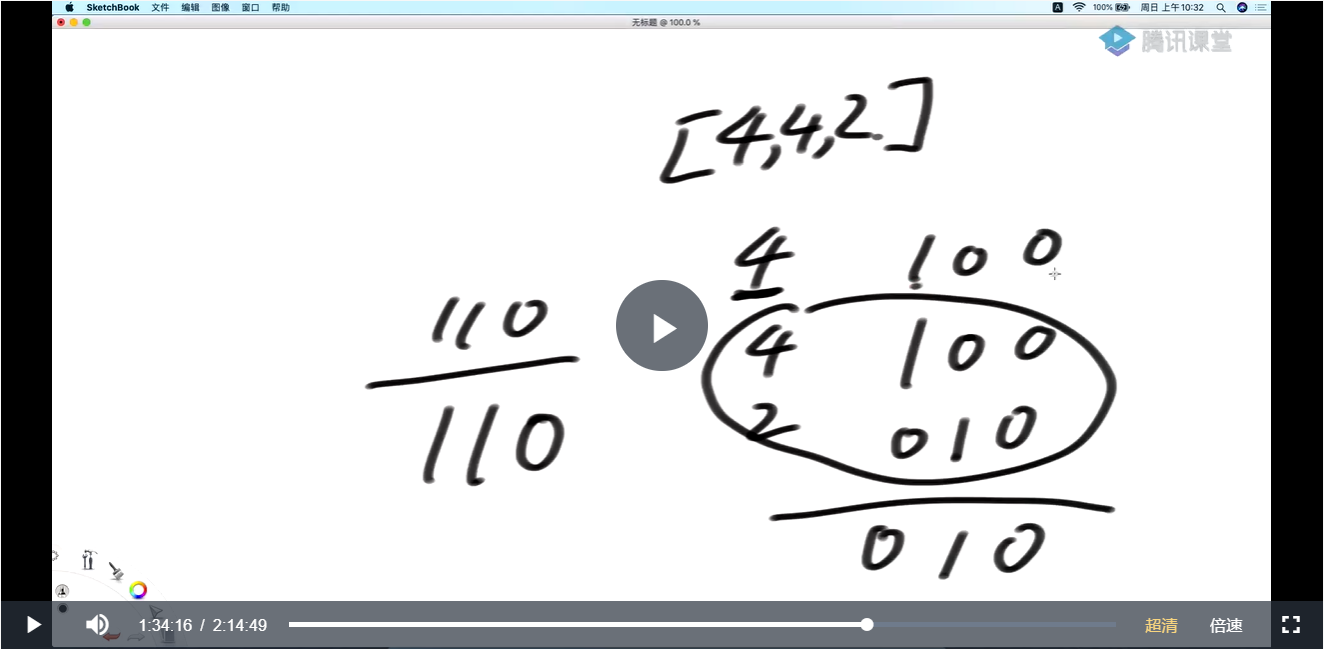 SketchBook 文件 编辑 图像 窗口 帮助 100% 周日 上午10:32
无标题 @ 100.0 %
腾讯课堂
[4,4,2.]
4 100
4 100
2 010
010
110
110
1:34:16 / 2:14:49 超清 倍速